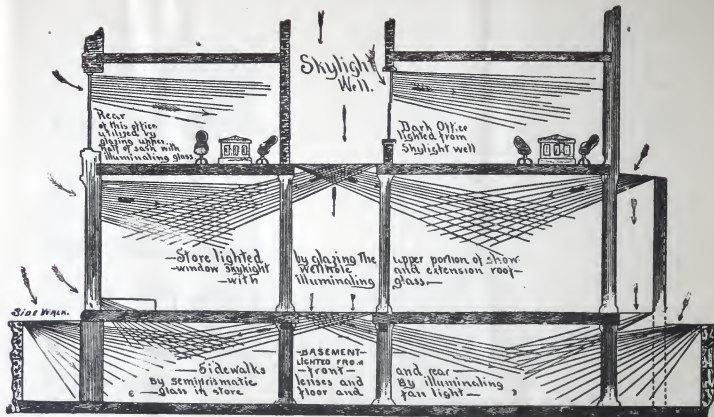 Skylight
Well.
Rear
of this office
utilized by
glazing upper
half of sash with
illuminating glass
Dark Office
lighted from
Skylight well
—Store lighted by glazing the upper portion of show-
—window skylight wellhole and extension roof—
—with illuminating glass—
SIDE WALK.
—BASEMENT—
LIGHTED FROM
—Sidewalks —front— and rear—
By semiprismatic lenses and By illuminating
—glass in store floor and fan light—